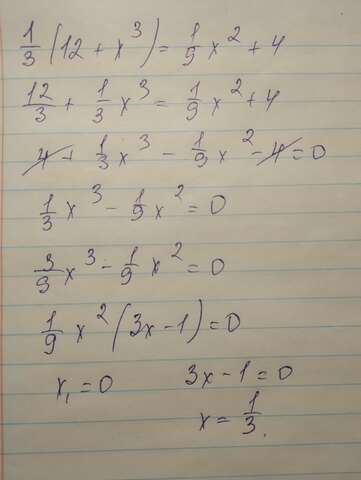 1/3 (12 + x³) = 1/9 x² + 4
12/3 + 1/3 x³ = 1/9 x² + 4
4 + 1/3 x³ - 1/9 x² - 4 = 0
1/3 x³ - 1/9 x² = 0
3/9 x³ - 1/9 x² = 0
1/9 x² (3x - 1) = 0
x₁ = 0 3x - 1 = 0
x = 1/3.